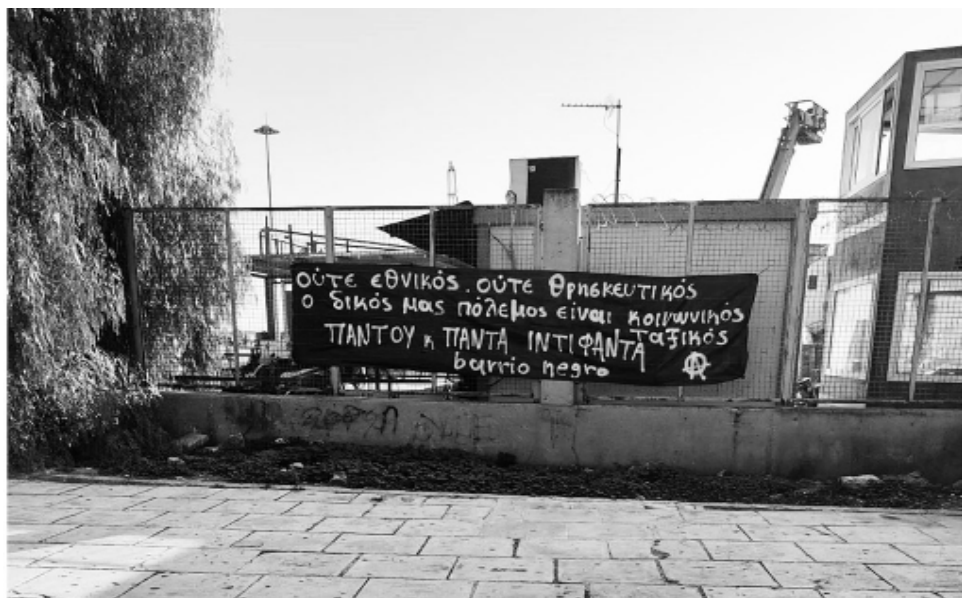 ούτε εθνικός. ούτε θρησκευτικός
ο δικός μας πόλεμος είναι κοινωνικός
ταξικός
ΠΑΝΤΟΥ κ ΠΑΝΤΑ ΙΝΤΙΦΑΝΤΑ
barrio negro